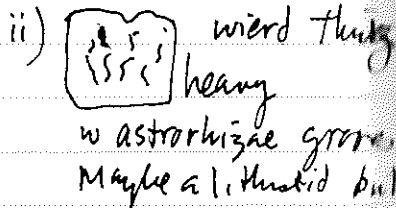 ii) wierd thing
heavy
w astrorhizae
Maybe a lithistid